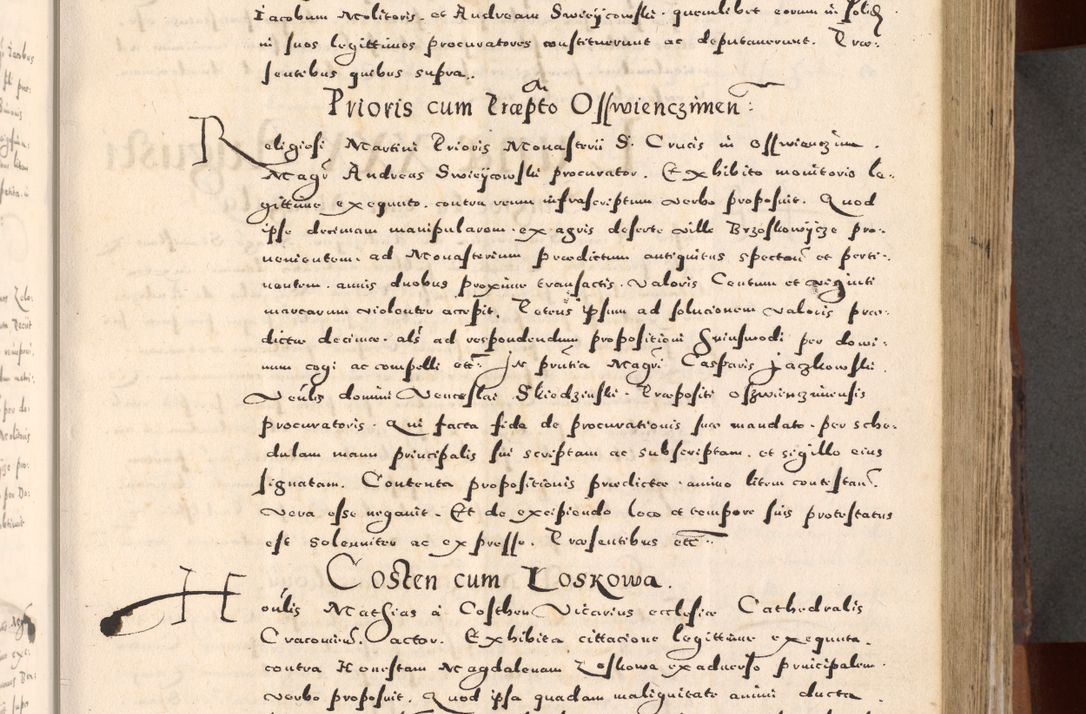 Iacobum Molitoris. et Andream Swieÿcowski. quemlibet eorum in solid
in suos legittimos procuratores constituerunt ac deputauerunt. Præ-
sentibus quibus supra.
Prioris cum Præpto Osswienczimen:
Religiosi Martini Prioris Monasterii S. Crucis in Osswienczim.
Magr Andreas Swieÿcowski procurator. Exhibito monitorio le-
gittime exequuto. contra reum infrascriptum verbo proposuit. Quod
ipse decimam manipularem. ex agris deserte ville Brzoskowÿcze pro-
uenientem. ad Monasterium prædictum antiquitus spectan et perti-
nentem. annis duobus proxime transactis. valoris Centum et viginti
marcarum violenter accepit. Petens ipsum ad solucionem valoris præ-
dictæ decimæ. als ad respondendum propositioni huiusmodi per domi-
num cogi ac compelli etc. In pñtia Magri Casparis Jaczkowski.
Vēnlis domini Venceslai Skiedzinski. Præpositi Oszwiencimensis
procuratoris. Qui facta fide de procurationis suæ mandato. per sche-
dulam manu principalis sui scriptam ac subscriptam. et sigillo eius
signatam. Contenta propositionis prædictæ. animo litem contestan
vera esse negauit. Et de excipiendo loco et tempore suis protestatus
est solenniter ac expresse. Præsentibus etc.
Costen cum Loskowa.
Honlis Mathias à Costhen Vicarius ecclesiæ Cathedralis
Cracouien. actor. Exhibita cittacione legittime exequuta.
contra Honestam Magdalenam Loskowa ex aduerso principalem.
verbo proposuit. Quod ipsa quadam malignitate animi ducta